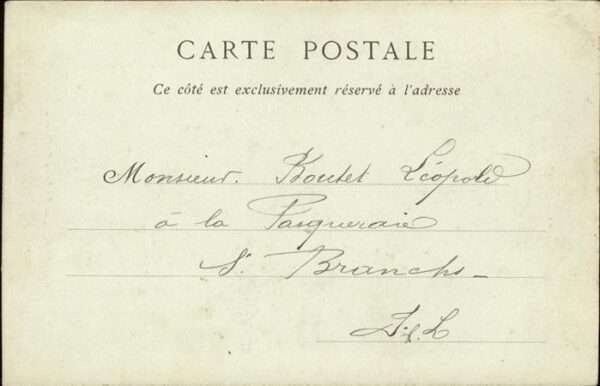 CARTE POSTALE
Ce côté est exclusivement réservé à l'adresse
Monsieur. Boutet Léopold
à la Pasqueraie
St Branchs-
I.&.L